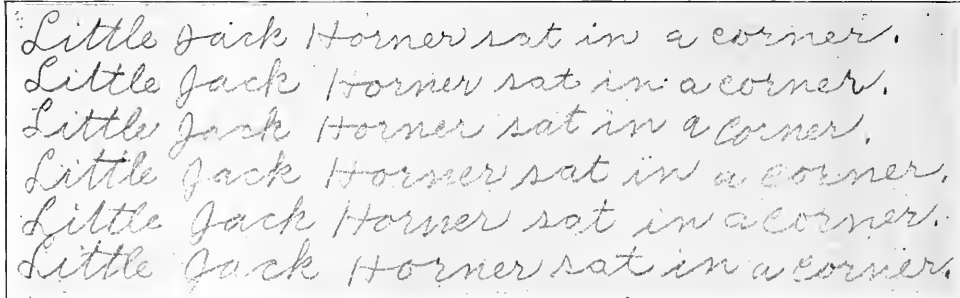 Little Jack Horner sat in a corner.
Little Jack Horner sat in a corner.
Little Jack Horner sat in a corner.
Little Jack Horner sat in a corner.
Little Jack Horner sat in a corner.
Little Jack Horner sat in a corner.